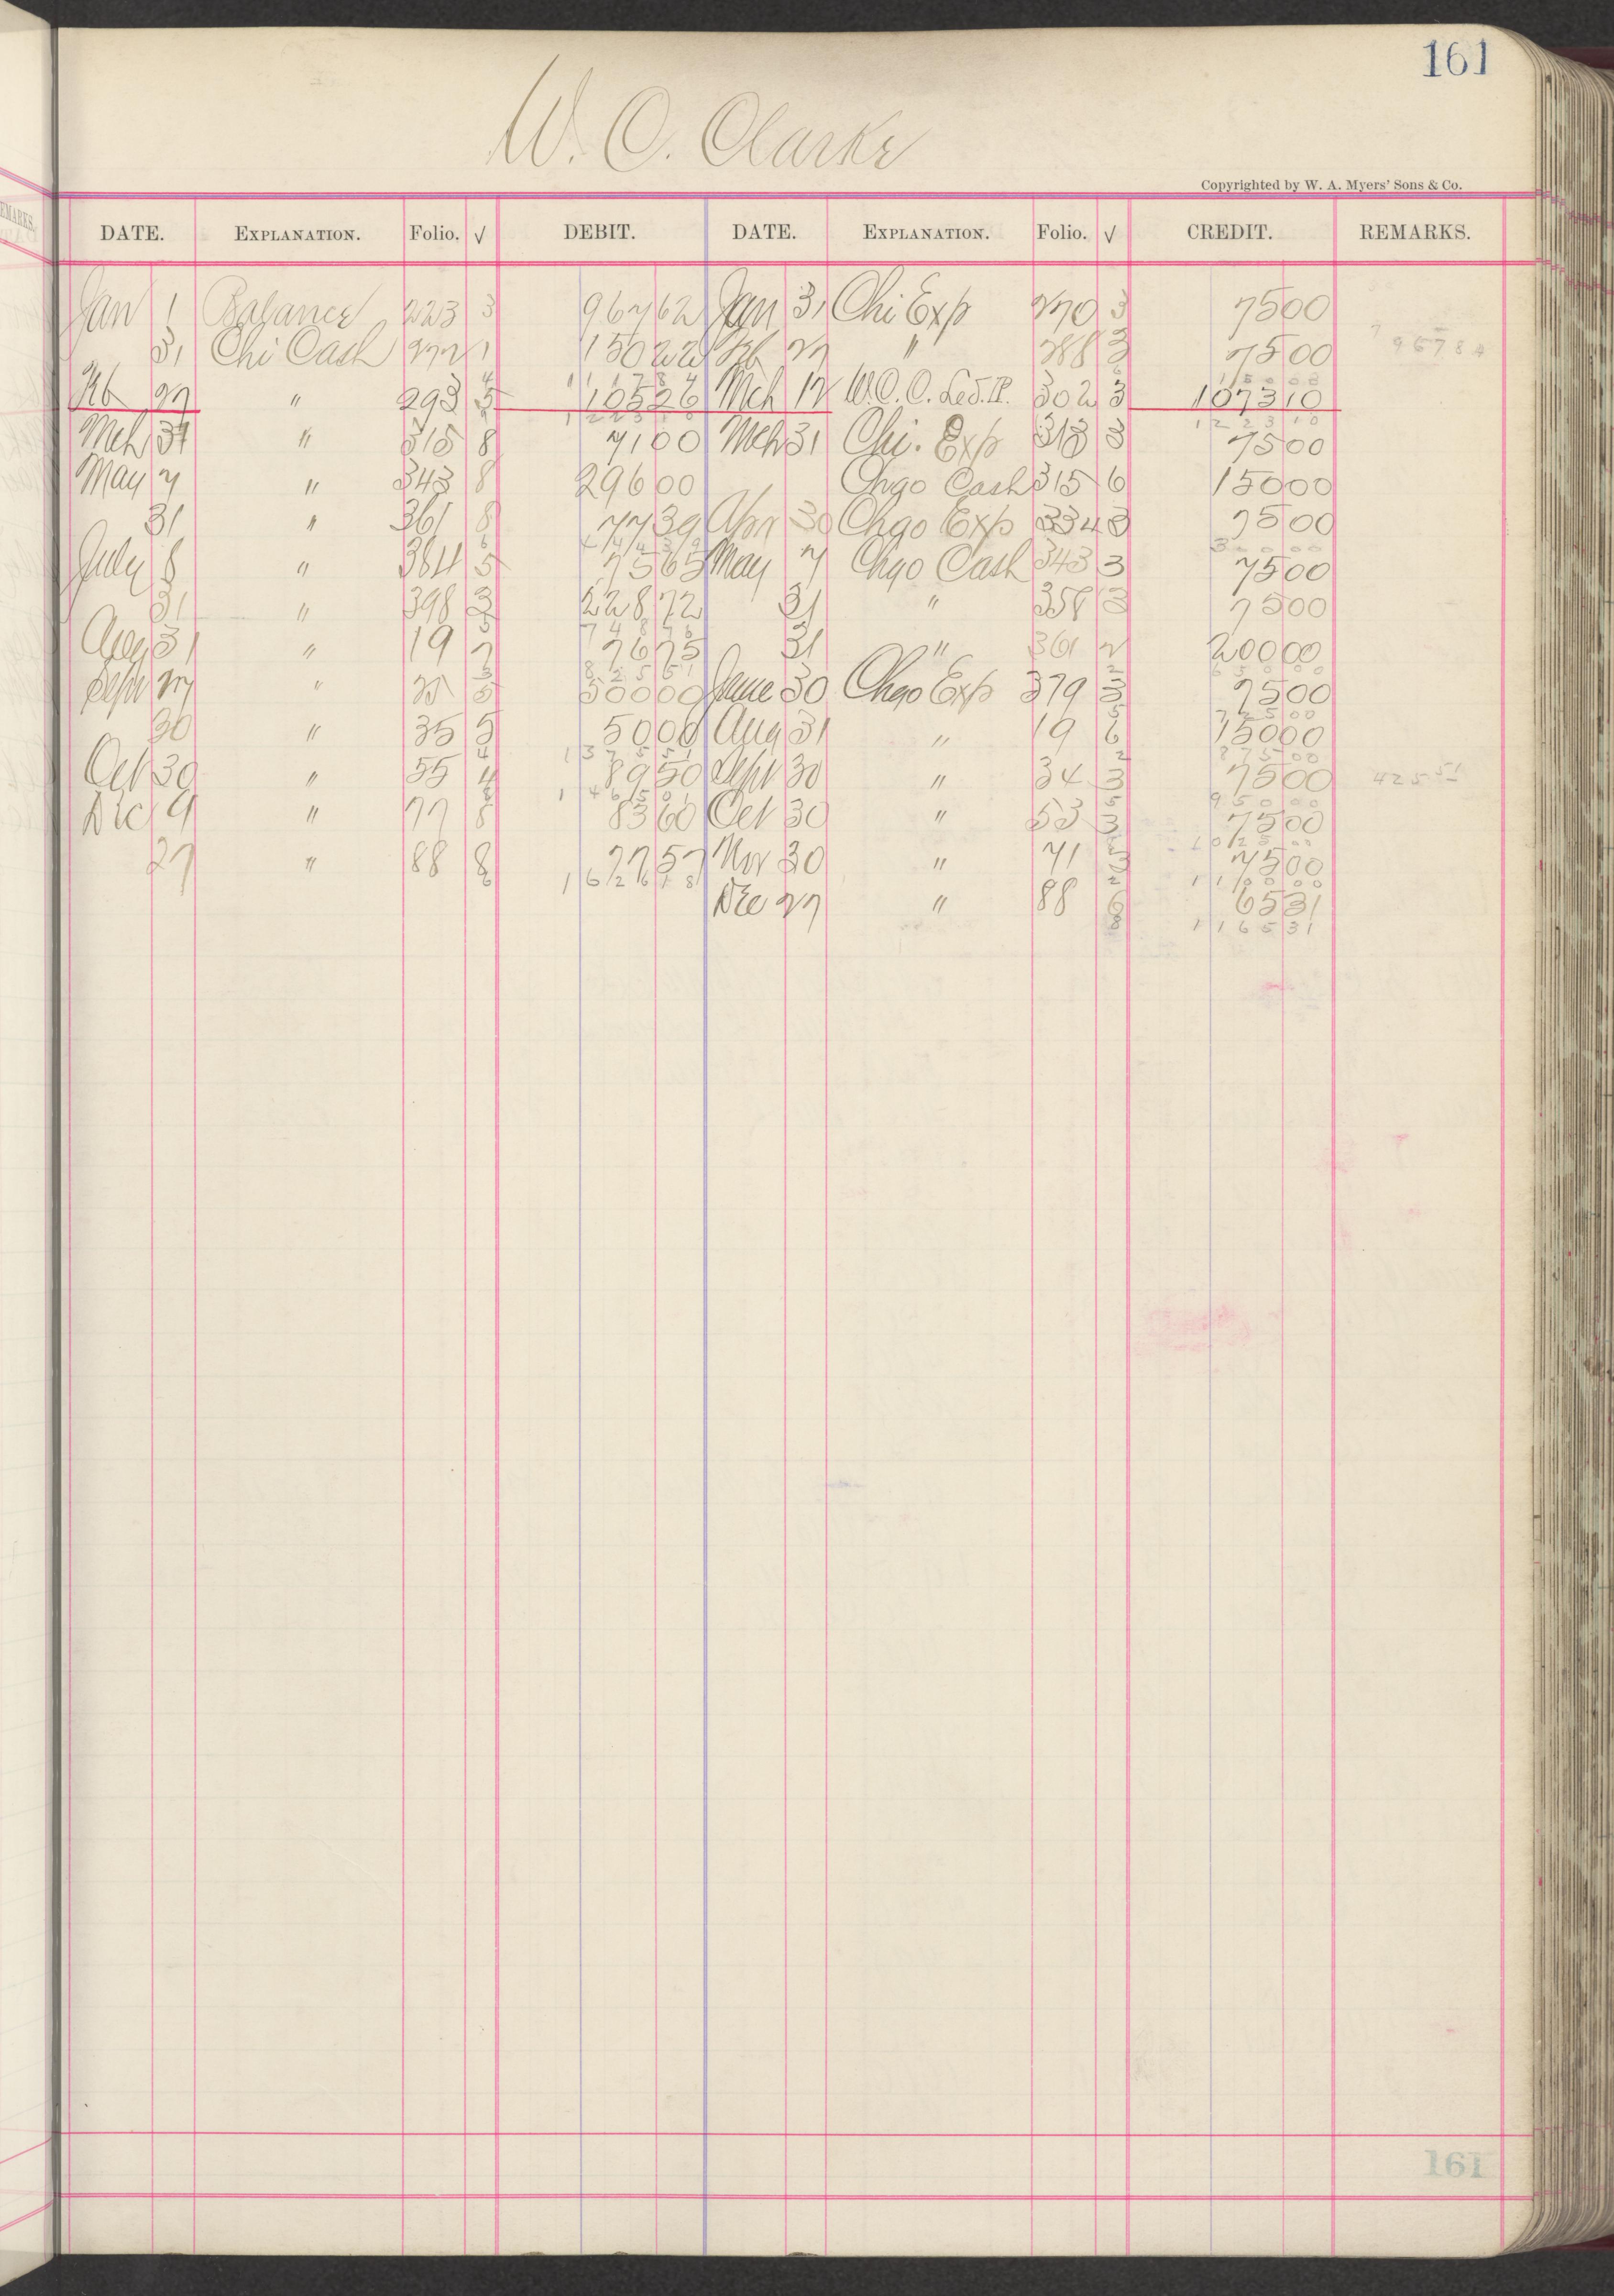 161
W. C. Clarke
Copyrighted by W. A. Myers' Sons & Co.
DATE. EXPLANATION. Folio. √ DEBIT. DATE. EXPLANATION. Folio. √ CREDIT. REMARKS.
Jan 1 Balance 223 3 967 62 Jan 31 Chi Exp 270 3 75 00
31 Chi Cash 272 1 150 22 Feb 27 " 288 3 75 00 96784
4 1 1 1 7 8 4 6 1 5 0 0 0
Feb 27 " 293 5 105 26 Mch 12 W. C. C. Led. P. 302 3 1073 10
1 2 2 3 1 0 1 2 2 3 1 0
Mch 31 " 315 8 71 00 Mch 31 Chi. Exp 318 3 75 00
May 7 " 343 8 296 00 Chgo Cash 315 6 150 00
31 " 361 8 77 39 Apr 30 Chgo Exp 334 3 75 00
6 4 4 4 3 9 3 0 0 0 0
July 8 " 364 5 75 65 May 7 Chgo Cash 343 3 75 00
31 " 398 3 228 72 31 " 358 3 75 00
7 4 8 7 6
Aug 31 " 19 7 76 75 31 " 361 2 200 00
8 2 5 5 1 2 6 5 0 0 0
Sept 27 " 5 500 00 June 30 Chgo Exp 379 3 75 00
5 7 2 5 0 0
30 " 35 5 50 00 Aug 31 " 19 6 150 00
4 1 3 7 5 5 1 2 8 7 5 0 0
Oct 30 " 55 4 89 50 Sept 30 " 34 3 75 00 425 51
1 4 6 5 0 1 5 9 5 0 0 0
Dec 9 " 77 8 83 60 Oct 30 " 53 3 75 00
1 0 2 5 0 0
27 " 88 8 77 57 Nov 30 " 71 3 75 00
6 1 6 2 6 1 8 2 1 1 0 0 0 0
Dec 27 " 88 6 65 31
8 1 1 6 5 3 1
161